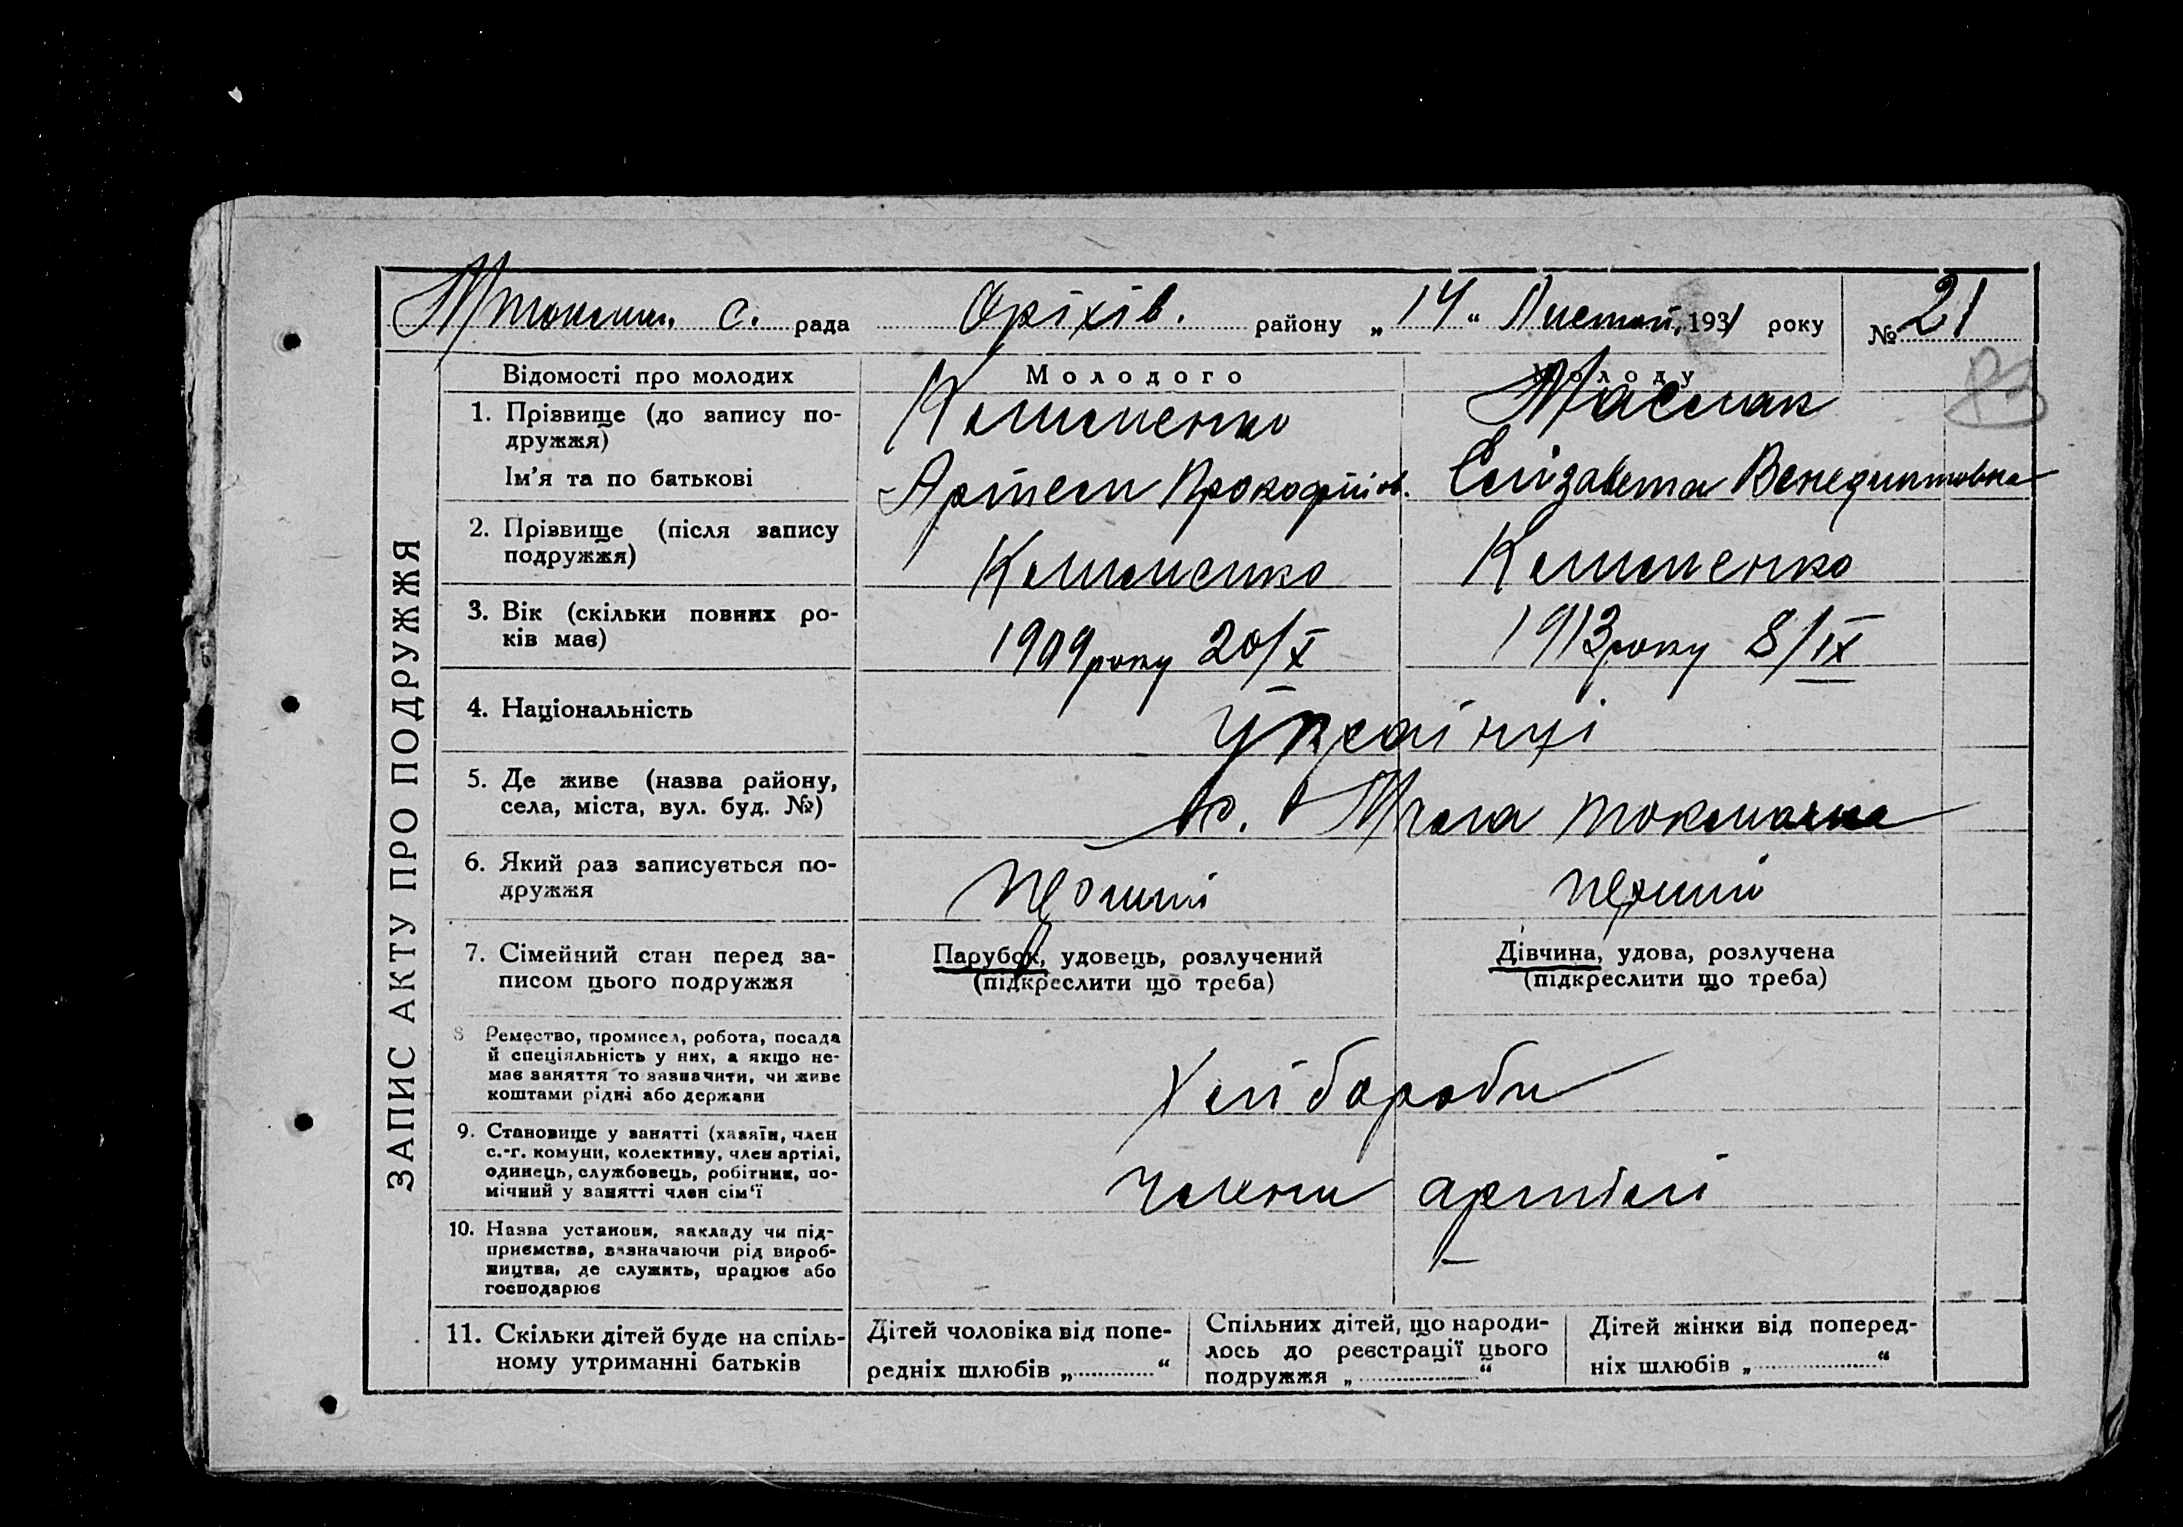 МТокмач. с. рада Оріхів. району „14“ Листоп. 1931 року № 21
83
ЗАПИС АКТУ ПРО ПОДРУЖЖЯ
Відомості про молодих Молодого Молоду
1. Прізвище (до запису по-
дружжя) Клименко Маслак
Ім'я та по батькові Артем Прокофійов. Єлізавета Венедиктовна
2. Прізвище (після запису
подружжя) Клименко Клименко
3. Вік (скільки повних ро-
ків має) 1909 року 20/X 1913 року 8/IX
4. Національність Українці
5. Де живе (назва району,
села, міста, вул. буд. №) с. Мала Токмачка
6. Який раз записується по-
дружжя перший перший
7. Сімейний стан перед за-
писом цього подружжя
Парубок, удовець, розлучений
(підкреслити що треба)
Дівчина, удова, розлучена
(підкреслити що треба)
8 Ремество, промисел, робота, посада
й спеціяльність у них, а якщо не-
має заняття то зазначити, чи живе
коштами рідні або держави
Хлібороби
9. Становище у занятті (хазяїн, член
с.-г. комуни, колективу, член артілі,
одинець, службовець, робітник, по-
мічний у занятті член сім'ї
члени артілі
10. Назва установи, закладу чи під-
приємства, зазначаючи рід вироб-
ництва, де служить, працює або
господарює
–
11. Скільки дітей буде на спіль-
ному утриманні батьків
Дітей чоловіка від попе-
редніх шлюбів „ “
Спільних дітей, що народи-
лось до реєстрації цього
подружжя „ “
Дітей жінки від поперед-
ніх шлюбів „ “